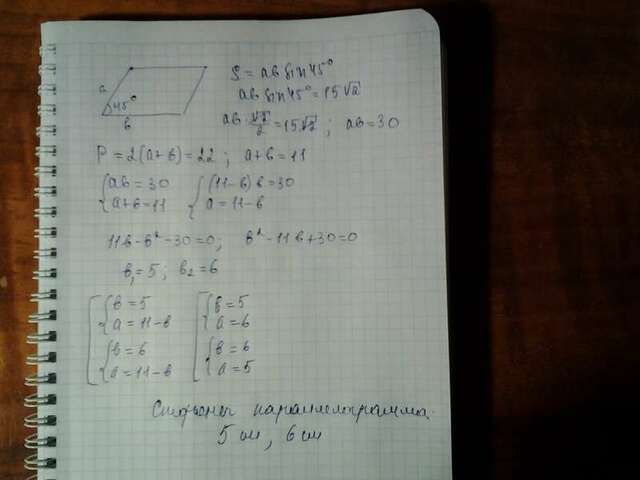 a
45°
b
S = ab sin 45°
ab sin 45° = 15√2
ab · √2/2 = 15√2 ; ab = 30
P = 2(a + b) = 22 ; a + b = 11
{ ab = 30 { (11 - b) b = 30
{ a + b = 11 { a = 11 - b
11b - b² - 30 = 0 ; b² - 11b + 30 = 0
b₁ = 5 ; b₂ = 6
[ { b = 5 [ { b = 5
{ a = 11 - b { a = 6
{ b = 6 { b = 6
{ a = 11 - b { a = 5
Стороны параллелограмма:
5 см, 6 см